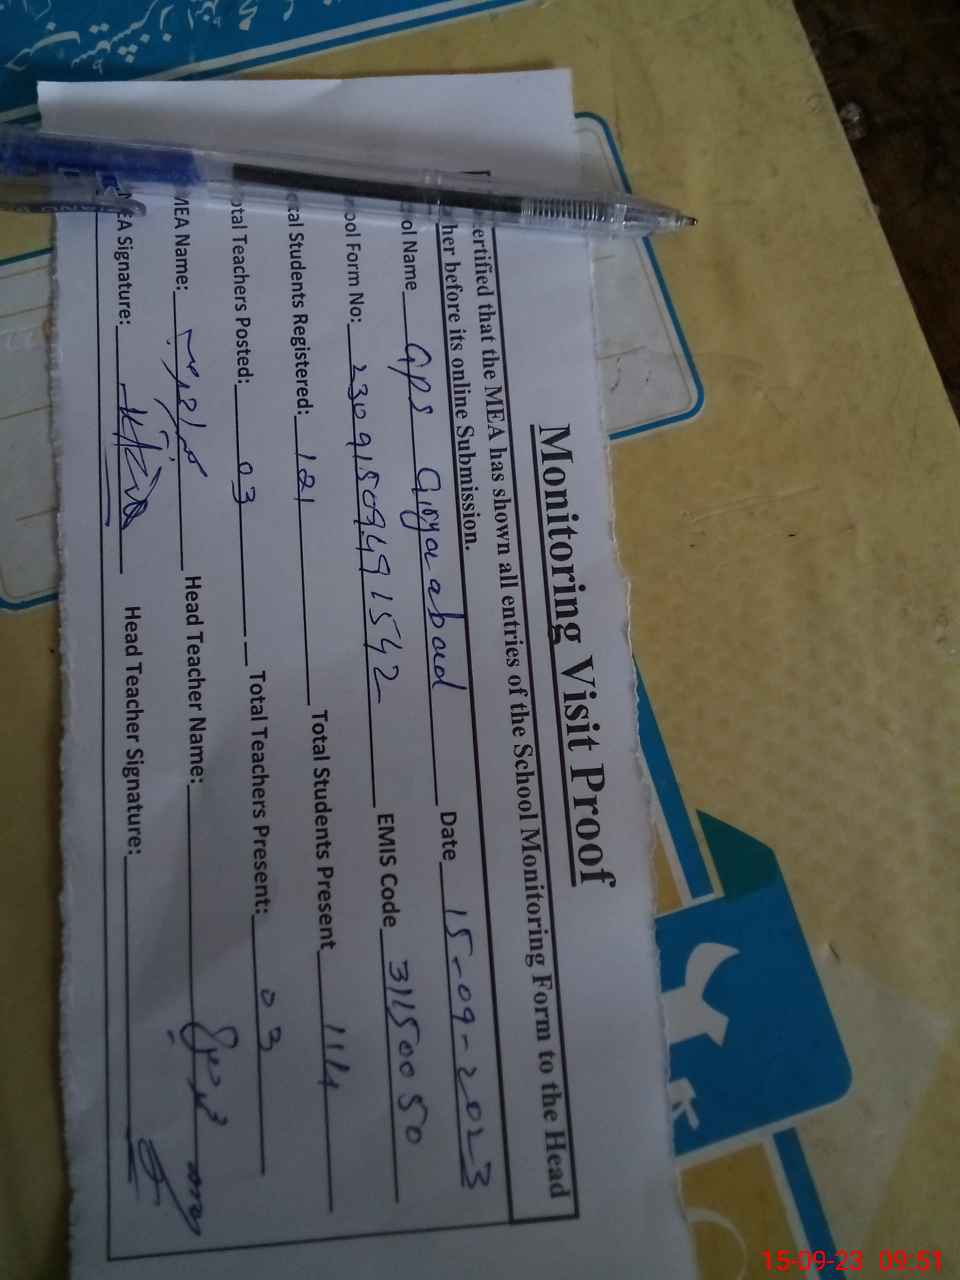 Monitoring Visit Proof
ertified that the MEA has shown all entries of the School Monitoring Form to the Head
her before its online Submission.
ol Name GPS Date 15-09-2023
ool Form No: 23091509491542 EMIS Code 31150050
tal Students Registered: 121 Total Students Present 114
otal Teachers Posted: 03 Total Teachers Present: 03
MEA Name: Head Teacher Name:
MEA Signature: Head Teacher Signature:
15-09-23 09:51